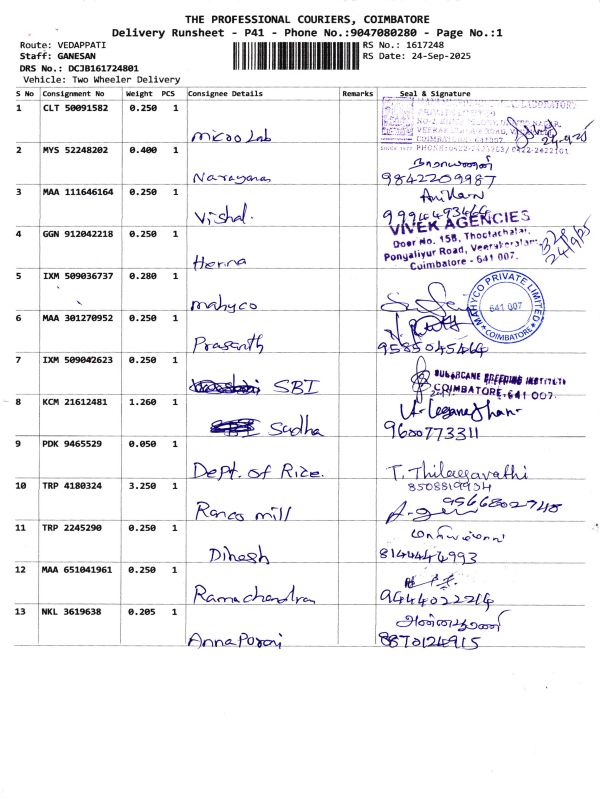 THE PROFESSIONAL COURIERS, COIMBATORE
Delivery Runsheet - P41 - Phone No.:9047080280 - Page No.:1
Route: VEDAPPATI
RS No.: 1617248
Staff: GANESAN
RS Date: 24-Sep-2025
DRS No.: DCJB161724801
Vehicle: Two Wheeler Delivery
S No Consignment No Weight PCS Consignee Details Remarks Seal & Signature
1 CLT 50091582 0.250 1
Micro Lab
COIMBATORE - 641007.
24-9-25
2 MYS 52248202 0.400 1
PHONE: 0422-2423763/ 0422-2422101
Narayanan
நாராயணன்
9842209987
3 MAA 111646164 0.250 1
Vishal.
9994493464
4 GGN 912042218 0.250 1
VIVEK AGENCIES
Door No. 15B, Thottachalai,
Ponyaliyur Road, Veerakeralam,
Coimbatore - 641 007.
24/9/25
Henna
5 IXM 509036737 0.280 1
mahyco
MAHYCO PRIVATE LIMITED
641 007
COIMBATORE
6 MAA 301270952 0.250 1
Prasanth
9585045464
7 IXM 509042623 0.250 1
SBI
SUGARCANE BREEDING INSTITUTE
COIMBATORE-641 007.
8 KCM 21612481 1.260 1
Sudha
9600773311
9 PDK 9465529 0.050 1
Dept. of Rice.
T. Thilagavathi
8508819934
10 TRP 4180324 3.250 1
mill
9566802748
11 TRP 2245290 0.250 1
Dinesh
8144444993
12 MAA 651041961 0.250 1
Ramachandran
9444022214
13 NKL 3619638 0.205 1
AnnaPorani
8870124915